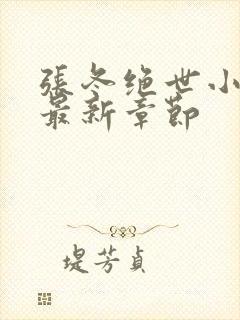 張冬绝世小
最新章節
堤芳貞